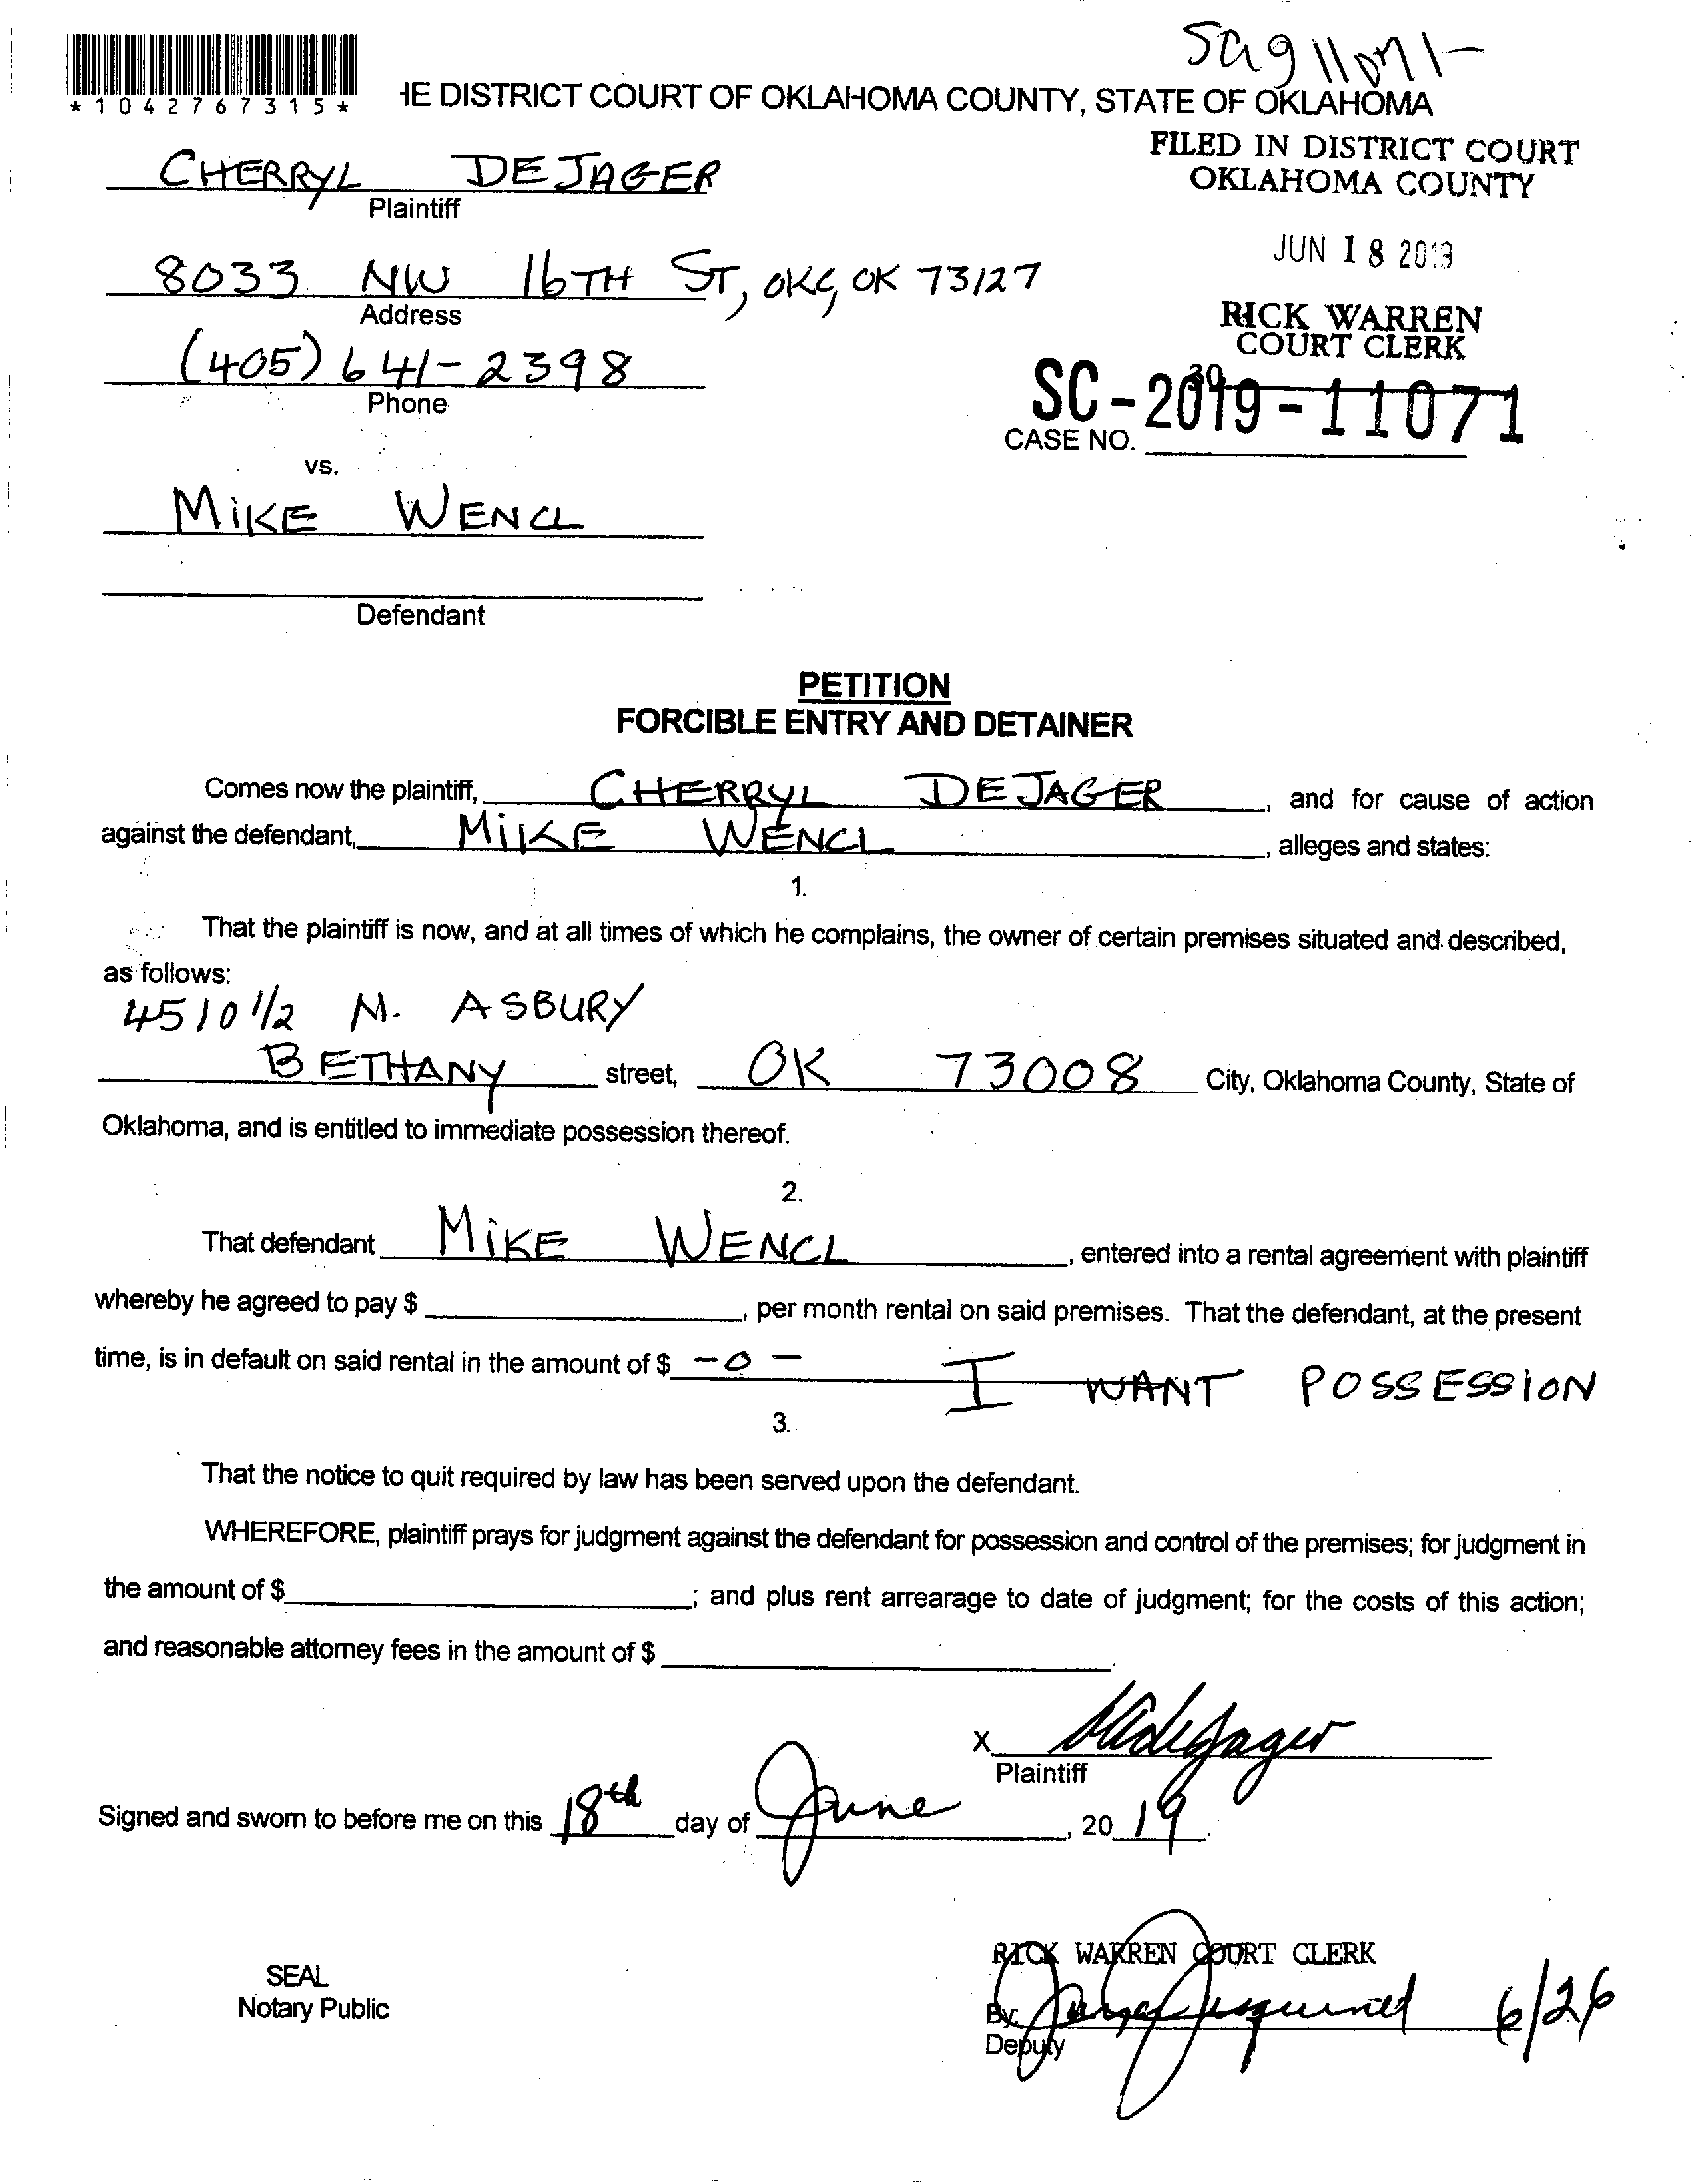 *1042767315*
HE DISTRICT COURT OF OKLAHOMA COUNTY, STATE OF OKLAHOMA
FILED IN DISTRICT COURT
OKLAHOMA COUNTY
CHERRYL DEJAGER
Plaintiff
JUN 18 2019
8033 NW 16TH ST, OKC, OK 73127
Address
RICK WARREN
COURT CLERK
(405) 641-2398
Phone
SC-2019-11071
39
CASE NO.
vs.
MIKE WENCL
Defendant
PETITION
FORCIBLE ENTRY AND DETAINER
Comes now the plaintiff, CHERRYL DEJAGER, and for cause of action
against the defendant, MIKE WENCL, alleges and states:
1.
That the plaintiff is now, and at all times of which he complains, the owner of certain premises situated and described,
as follows:
4510 1/2 N. ASBURY
BETHANY street, OK 73008 City, Oklahoma County, State of
Oklahoma, and is entitled to immediate possession thereof.
2.
That defendant MIKE WENCL, entered into a rental agreement with plaintiff
whereby he agreed to pay $ , per month rental on said premises. That the defendant, at the present
time, is in default on said rental in the amount of $ -0- I WANT POSSESSION
3.
That the notice to quit required by law has been served upon the defendant.
WHEREFORE, plaintiff prays for judgment against the defendant for possession and control of the premises; for judgment in
the amount of $ ; and plus rent arrearage to date of judgment; for the costs of this action;
and reasonable attorney fees in the amount of $ .
X
Plaintiff
Signed and sworn to before me on this 18th day of June, 20 19.
RICK WARREN COURT CLERK
SEAL
Notary Public
By: 6/26
Deputy